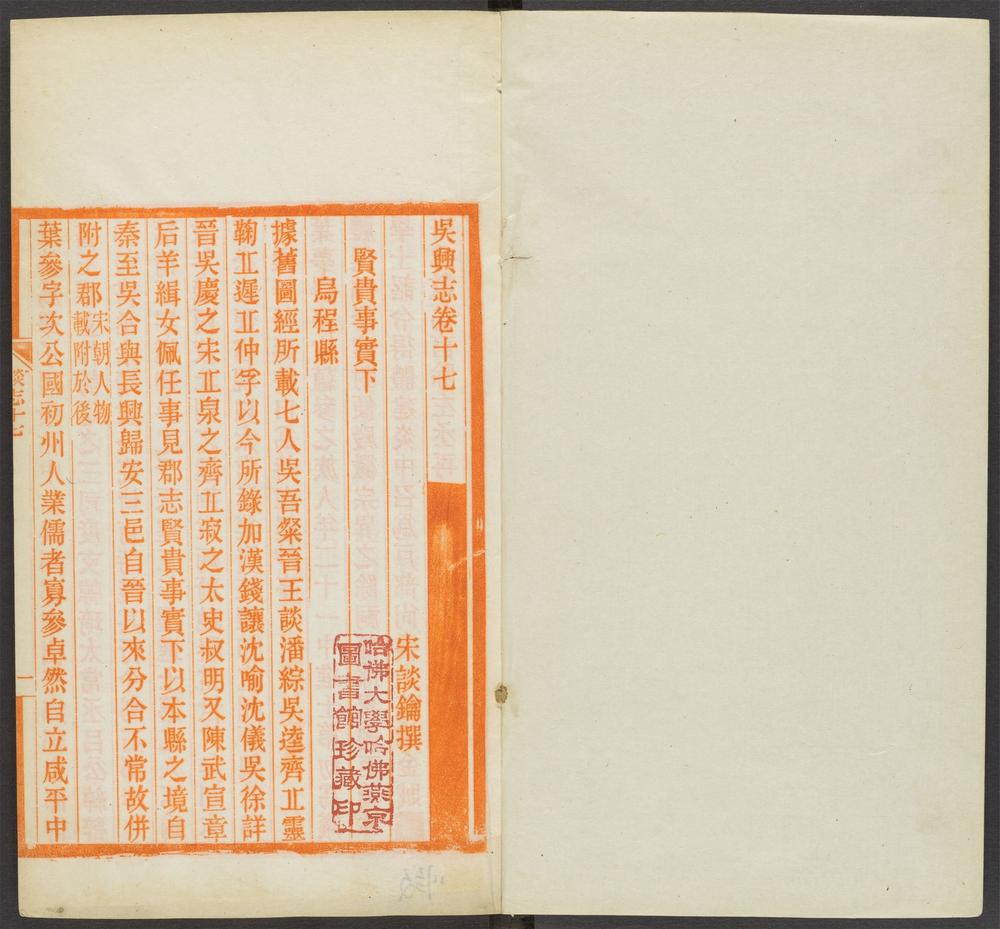 吳興志卷十七
宋談鑰撰
賢貴事實下
烏程縣
據舊圖經所載七人吳吾粲晉王談潘綜吳逵齊丠靈
鞠丠遲丠仲孚以今所錄加漢錢讓沈喻沈儀吳徐詳
晉吳慶之宋丠泉之齊丠寂之太史叔明又陳武宣章
后羊緝女佩任事見郡志賢貴事實下以本縣之境自
秦至吳合與長興歸安三邑自晉以來分合不常故併
附之郡宋朝人物
載附於後
葉參字次公國初州人業儒者寡參卓然自立咸平中
談志十七
一
哈佛大學哈佛燕京
圖書館珍藏印